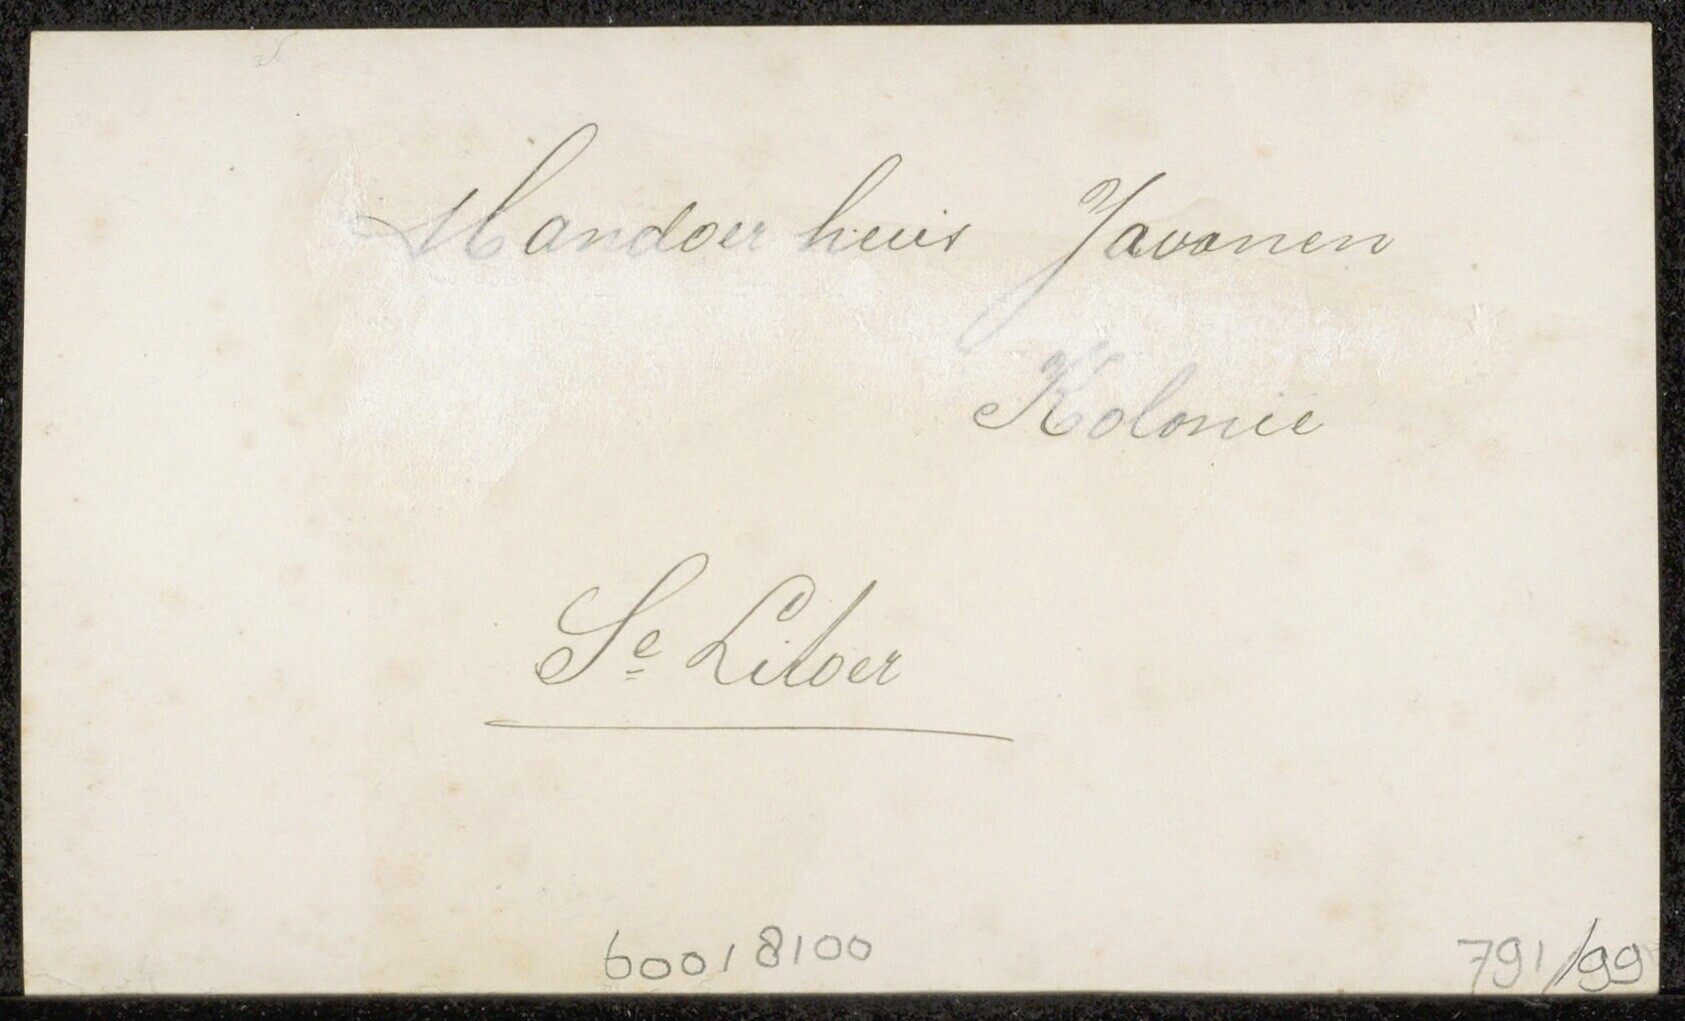 Mandoer huis Javanen
Kolonie
Se Litoer
60018100
791/99